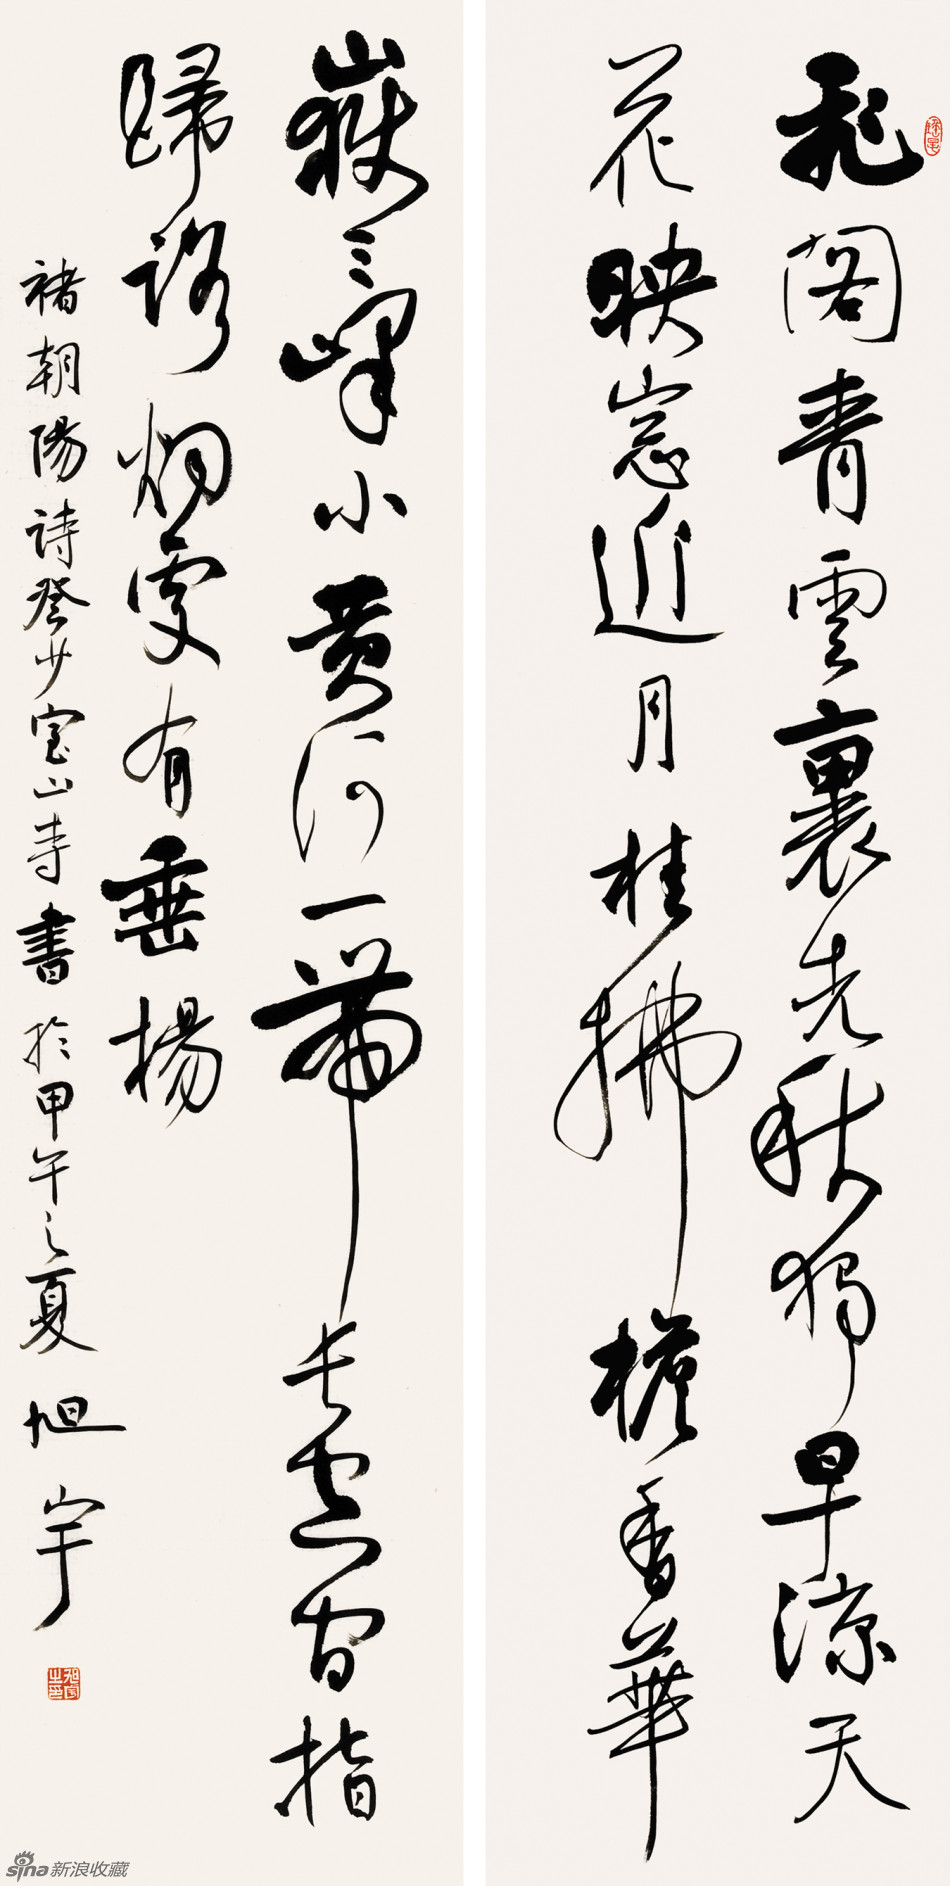 飛閣青雲裏先秋獨早涼天
花映窓近月桂拂檐香華
嶽三峰小黄河一帶長空間指
歸路烟處有垂楊
褚朝陽詩登少室山寺書於甲午之夏旭宇
sina新浪收藏